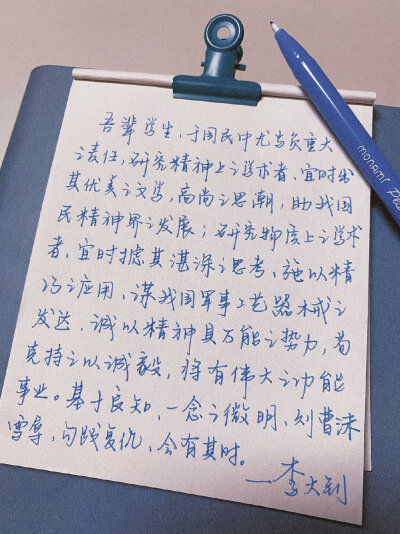 吾辈学生，于国民中尤当负重大
之责任，研究精神上之学术者，宜时出
其优美之文学，高尚之思潮，助我国
民精神界之发展；研究物质上之学术
者，宜时摅其湛深之思考，施以精
巧之应用，谋我国军事工艺器械之
发达，诚以精神具万能之势力，苟
克持之以诚毅，将有伟大之功能
事业。基于良知，一念之微明，则曹沫
雪辱，勾践复仇，会有其时。
—李大钊
monami Plus